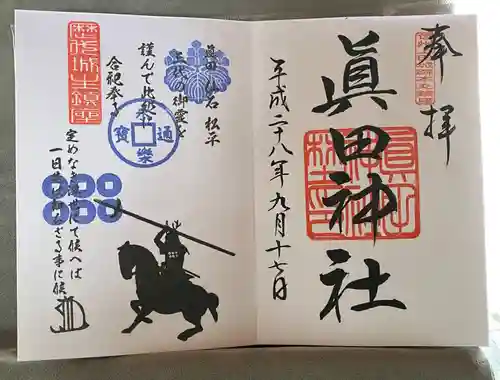 奉拝
眞田神社
平成二十八年九月十七日
眞田 仙石 松平
三代の御霊を
謹んで此処に
合祀奉る
歴代城主鎮座
永樂通寶
定めなき浮世にて候へば
一日先は知らざる事に候